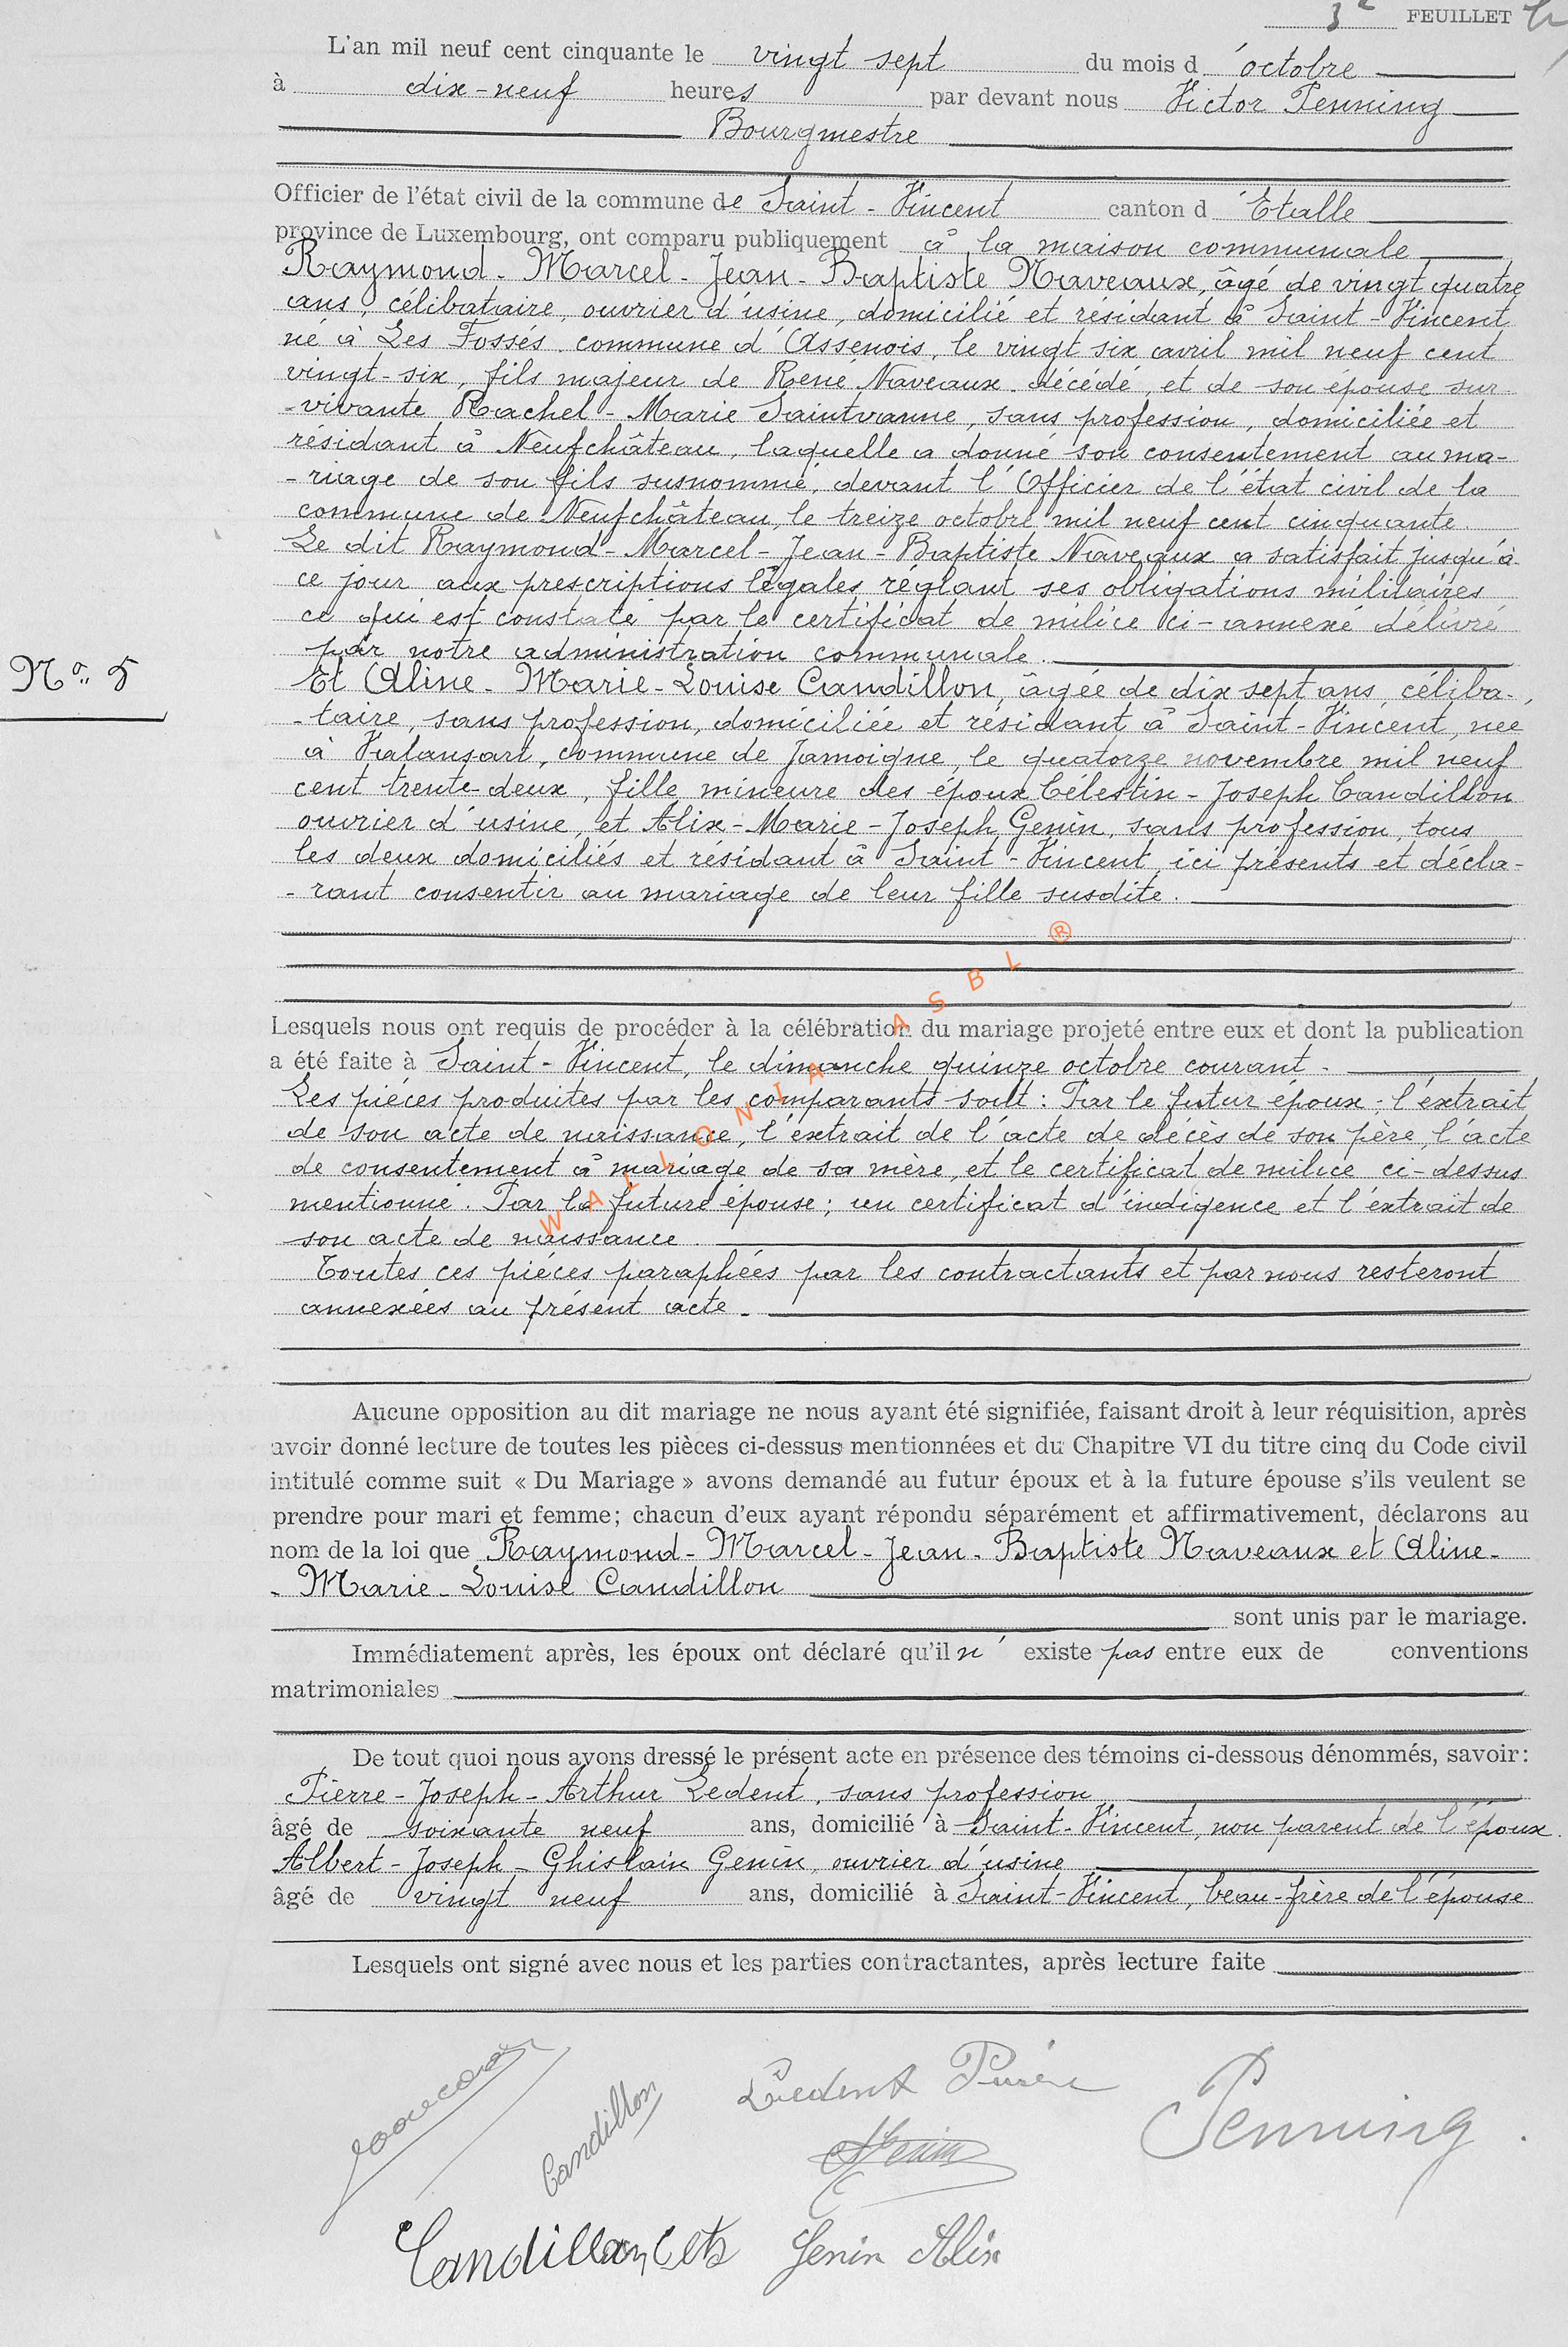 3e FEUILLET
L'an mil neuf cent cinquante le vingt sept du mois d'octobre
à dix-neuf heures par devant nous Victor Penning
Bourgmestre
Officier de l'état civil de la commune de Saint-Vincent canton d'Etalle
province de Luxembourg, ont comparu publiquement à la maison communale
Raymond-Marcel-Jean-Baptiste Naveaux, âgé de vingt quatre
ans, célibataire, ouvrier d'usine, domicilié et résidant à Saint-Vincent
né à Les Fossés commune d'Assenois, le vingt six avril mil neuf cent
vingt-six, fils majeur de René Naveaux décédé, et de son épouse sur-
-vivante Rachel-Marie Saintvanne, sans profession, domiciliée et
résidant à Neufchâteau, laquelle a donné son consentement au ma-
-riage de son fils susnommé, devant l'Officier de l'état civil de la
commune de Neufchâteau, le treize octobre mil neuf cent cinquante.
Le dit Raymond-Marcel-Jean-Baptiste Naveaux a satisfait jusqu'à
ce jour aux prescriptions légales réglant ses obligations militaires
ce qui est constaté par le certificat de milice ci-annexé délivré
par notre administration communale.
No. 5
Et Aline-Marie-Louise Candillon, âgée de dix sept ans, céliba-
-taire, sans profession, domiciliée et résidant à Saint-Vincent, née
à Valansart, commune de Jamoigne, le quatorze novembre mil neuf
cent trente-deux, fille mineure des époux Célestin-Joseph Candillon
ouvrier d'usine, et Alix-Marie-Joseph Genin, sans profession, tous
les deux domiciliés et résidant à Saint-Vincent, ici présents et décla-
-rant consentir au mariage de leur fille susdite.
Lesquels nous ont requis de procéder à la célébration du mariage projeté entre eux et dont la publication
a été faite à Saint-Vincent, le dimanche quinze octobre courant.
Les pièces produites par les comparants sont : Par le futur époux : l'extrait
de son acte de naissance, l'extrait de l'acte de décès de son père, l'acte
de consentement à mariage de sa mère, et le certificat de milice ci-dessus
mentionné. Par la future épouse ; un certificat d'indigence et l'extrait de
son acte de naissance.
Toutes ces pièces paraphées par les contractants et par nous resteront
annexées au présent acte.
WALLONIA ASBL ®
Aucune opposition au dit mariage ne nous ayant été signifiée, faisant droit à leur réquisition, après
avoir donné lecture de toutes les pièces ci-dessus mentionnées et du Chapitre VI du titre cinq du Code civil
intitulé comme suit « Du Mariage » avons demandé au futur époux et à la future épouse s'ils veulent se
prendre pour mari et femme; chacun d'eux ayant répondu séparément et affirmativement, déclarons au
nom de la loi que Raymond-Marcel-Jean-Baptiste Naveaux et Aline-
-Marie-Louise Candillon
sont unis par le mariage.
Immédiatement après, les époux ont déclaré qu'il n'existe pas entre eux de conventions
matrimoniales
De tout quoi nous avons dressé le présent acte en présence des témoins ci-dessous dénommés, savoir:
Pierre-Joseph-Arthur Ledent, sans profession
âgé de soixante neuf ans, domicilié à Saint-Vincent, non parent de l'époux.
Albert-Joseph-Ghislain Genin, ouvrier d'usine
âgé de vingt neuf ans, domicilié à Saint-Vincent, beau-frère de l'épouse
Lesquels ont signé avec nous et les parties contractantes, après lecture faite
Candillon
Ledent Pierre
Genin
Penning
Candillon
Genin Alix